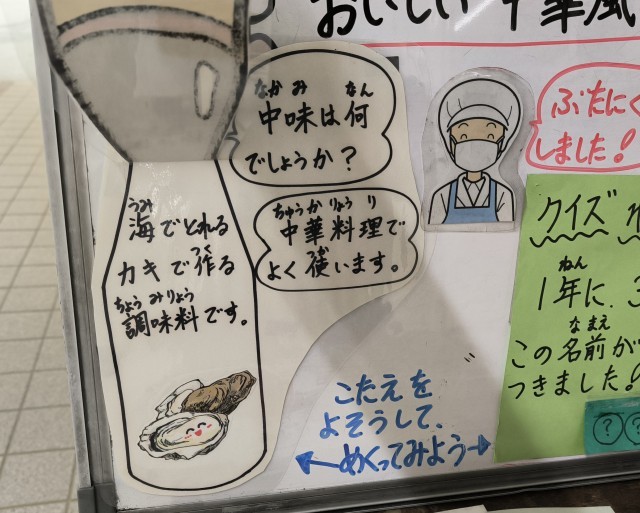 おいしい中華風
なかみ なん
中味は何
でしょうか？
うみ
海でとれる
つく
カキで作る
ちょうみりょう
調味料です。
ちゅうかりょうり
中華料理で
つか
よく使います。
ぶたにく
しました！
クイズ
ねん
1年に、3
なまえ
この名前が
つきました！
??
こたえを
よそうして、
めくってみよう